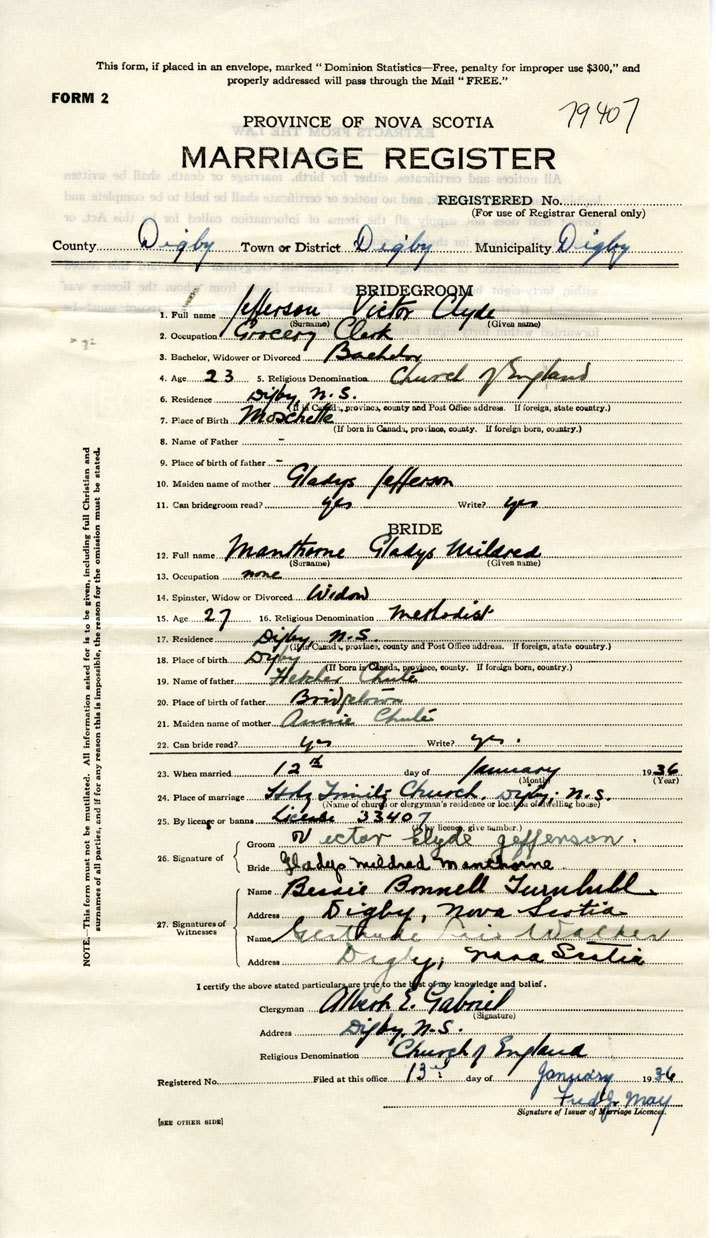 This form, if placed in an envelope, marked “Dominion Statistics—Free, penalty for improper use $300,” and
properly addressed will pass through the Mail “FREE.”
FORM 2
79407
PROVINCE OF NOVA SCOTIA
MARRIAGE REGISTER
REGISTERED No.
(For use of Registrar General only)
County Digby Town or District Digby Municipality Digby
BRIDEGROOM
1. Full name Jefferson Victor Clyde
(Surname) (Given name)
2. Occupation Grocery Clerk
3. Bachelor, Widower or Divorced Bachelor
4. Age 23 5. Religious Denomination Church of England
6. Residence Digby, N.S.
(If in Canada, province, county and Post Office address. If foreign, state country.)
7. Place of Birth Moschelle
(If born in Canada, province, county. If foreign born, country.)
8. Name of Father -
9. Place of birth of father -
10. Maiden name of mother Gladys Jefferson
11. Can bridegroom read? yes Write? yes
BRIDE
12. Full name Manthorne Gladys Mildred
(Surname) (Given name)
13. Occupation none
14. Spinster, Widow or Divorced Widow
15. Age 27 16. Religious Denomination Methodist
17. Residence Digby, N.S.
(If in Canada, province, county and Post Office address. If foreign, state country.)
18. Place of birth Digby
(If born in Canada, province, county. If foreign born, country.)
19. Name of father Fletcher Chute
20. Place of birth of father Bridgetown
21. Maiden name of mother Annie Chute
22. Can bride read? yes Write? yes.
23. When married 12th day of January 1936
(Month) (Year)
24. Place of marriage Holy Trinity Church, Digby, N.S.
(Name of church or clergyman's residence or location of dwelling house)
25. By license or banns License 33407
(If by licence, give number.)
26. Signature of
Groom Victor Clyde Jefferson.
Bride Gladys Mildred Manthorne
27. Signatures of Witnesses
Name Bessie Bonnell Turnbull
Address Digby, Nova Scotia
Name Gertrude Walker
Address Digby, Nova Scotia
I certify the above stated particulars are true to the best of my knowledge and belief.
Clergyman Albert E. Gabriel
(Signature)
Address Digby, N.S.
Religious Denomination Church of England
Registered No. Filed at this office 13th day of January 1936
Fred J. May
Signature of Issuer of Marriage Licences.
[SEE OTHER SIDE]
NOTE.—This form must not be mutilated. All information asked for is to be given, including full Christian and
surnames of all parties, and if for any reason this is impossible, the reason for the omission must be stated.